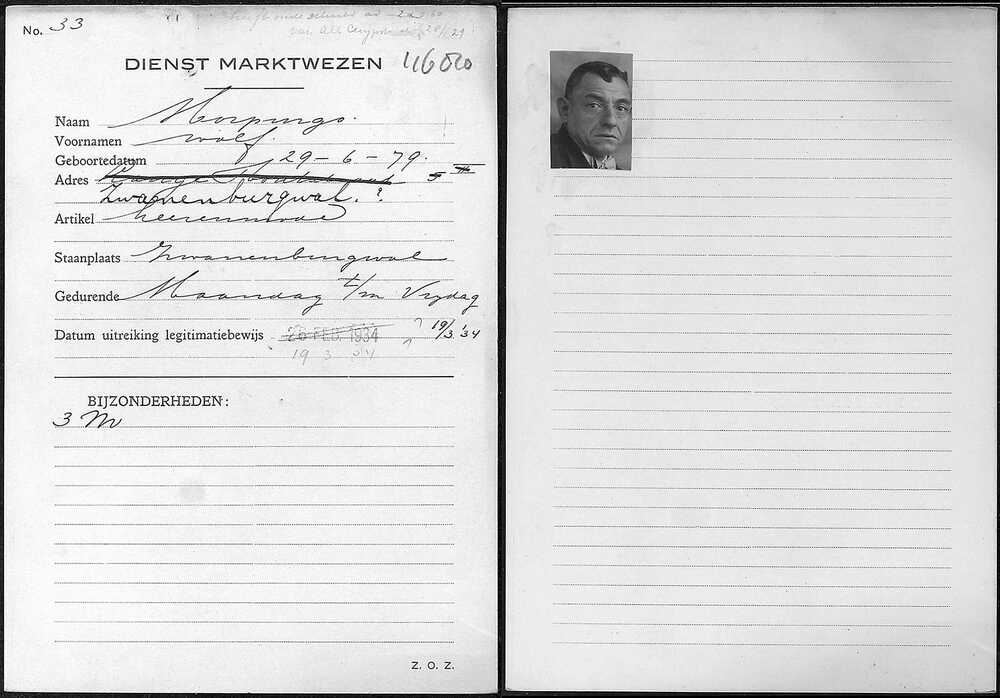 No. 33
116000
DIENST MARKTWEZEN
Naam Morpurgo.
Voornamen Wolf.
Geboortedatum 29-6-79.
Adres 5 II
Zwanenburgwal. ?
Artikel heerenmode
Staanplaats Zwanenburgwal
Gedurende Maandag t/m Vrijdag
Datum uitreiking legitimatiebewijs 26 FEB. 1934 19/3.'34
19 3 34
BIJZONDERHEDEN:
3 M
Z. O. Z.